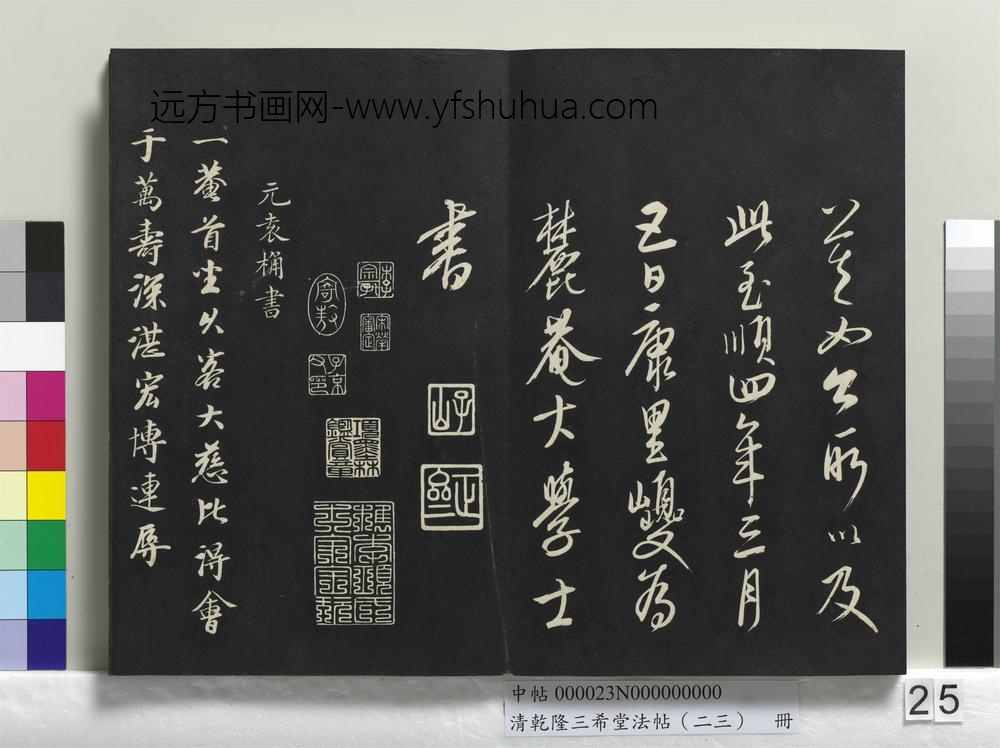 远方书画网-www.yfshuhua.com
莫如公所以及
此至順四年三月
五日康里巎為
麓菴大學士
書
元袁桷書
一菴首坐久客大慈比得會
于萬壽深湛宏博連辱
子山
項墨林鑑賞章
中帖 000023N000000000
清乾隆三希堂法帖（二三） 冊
25